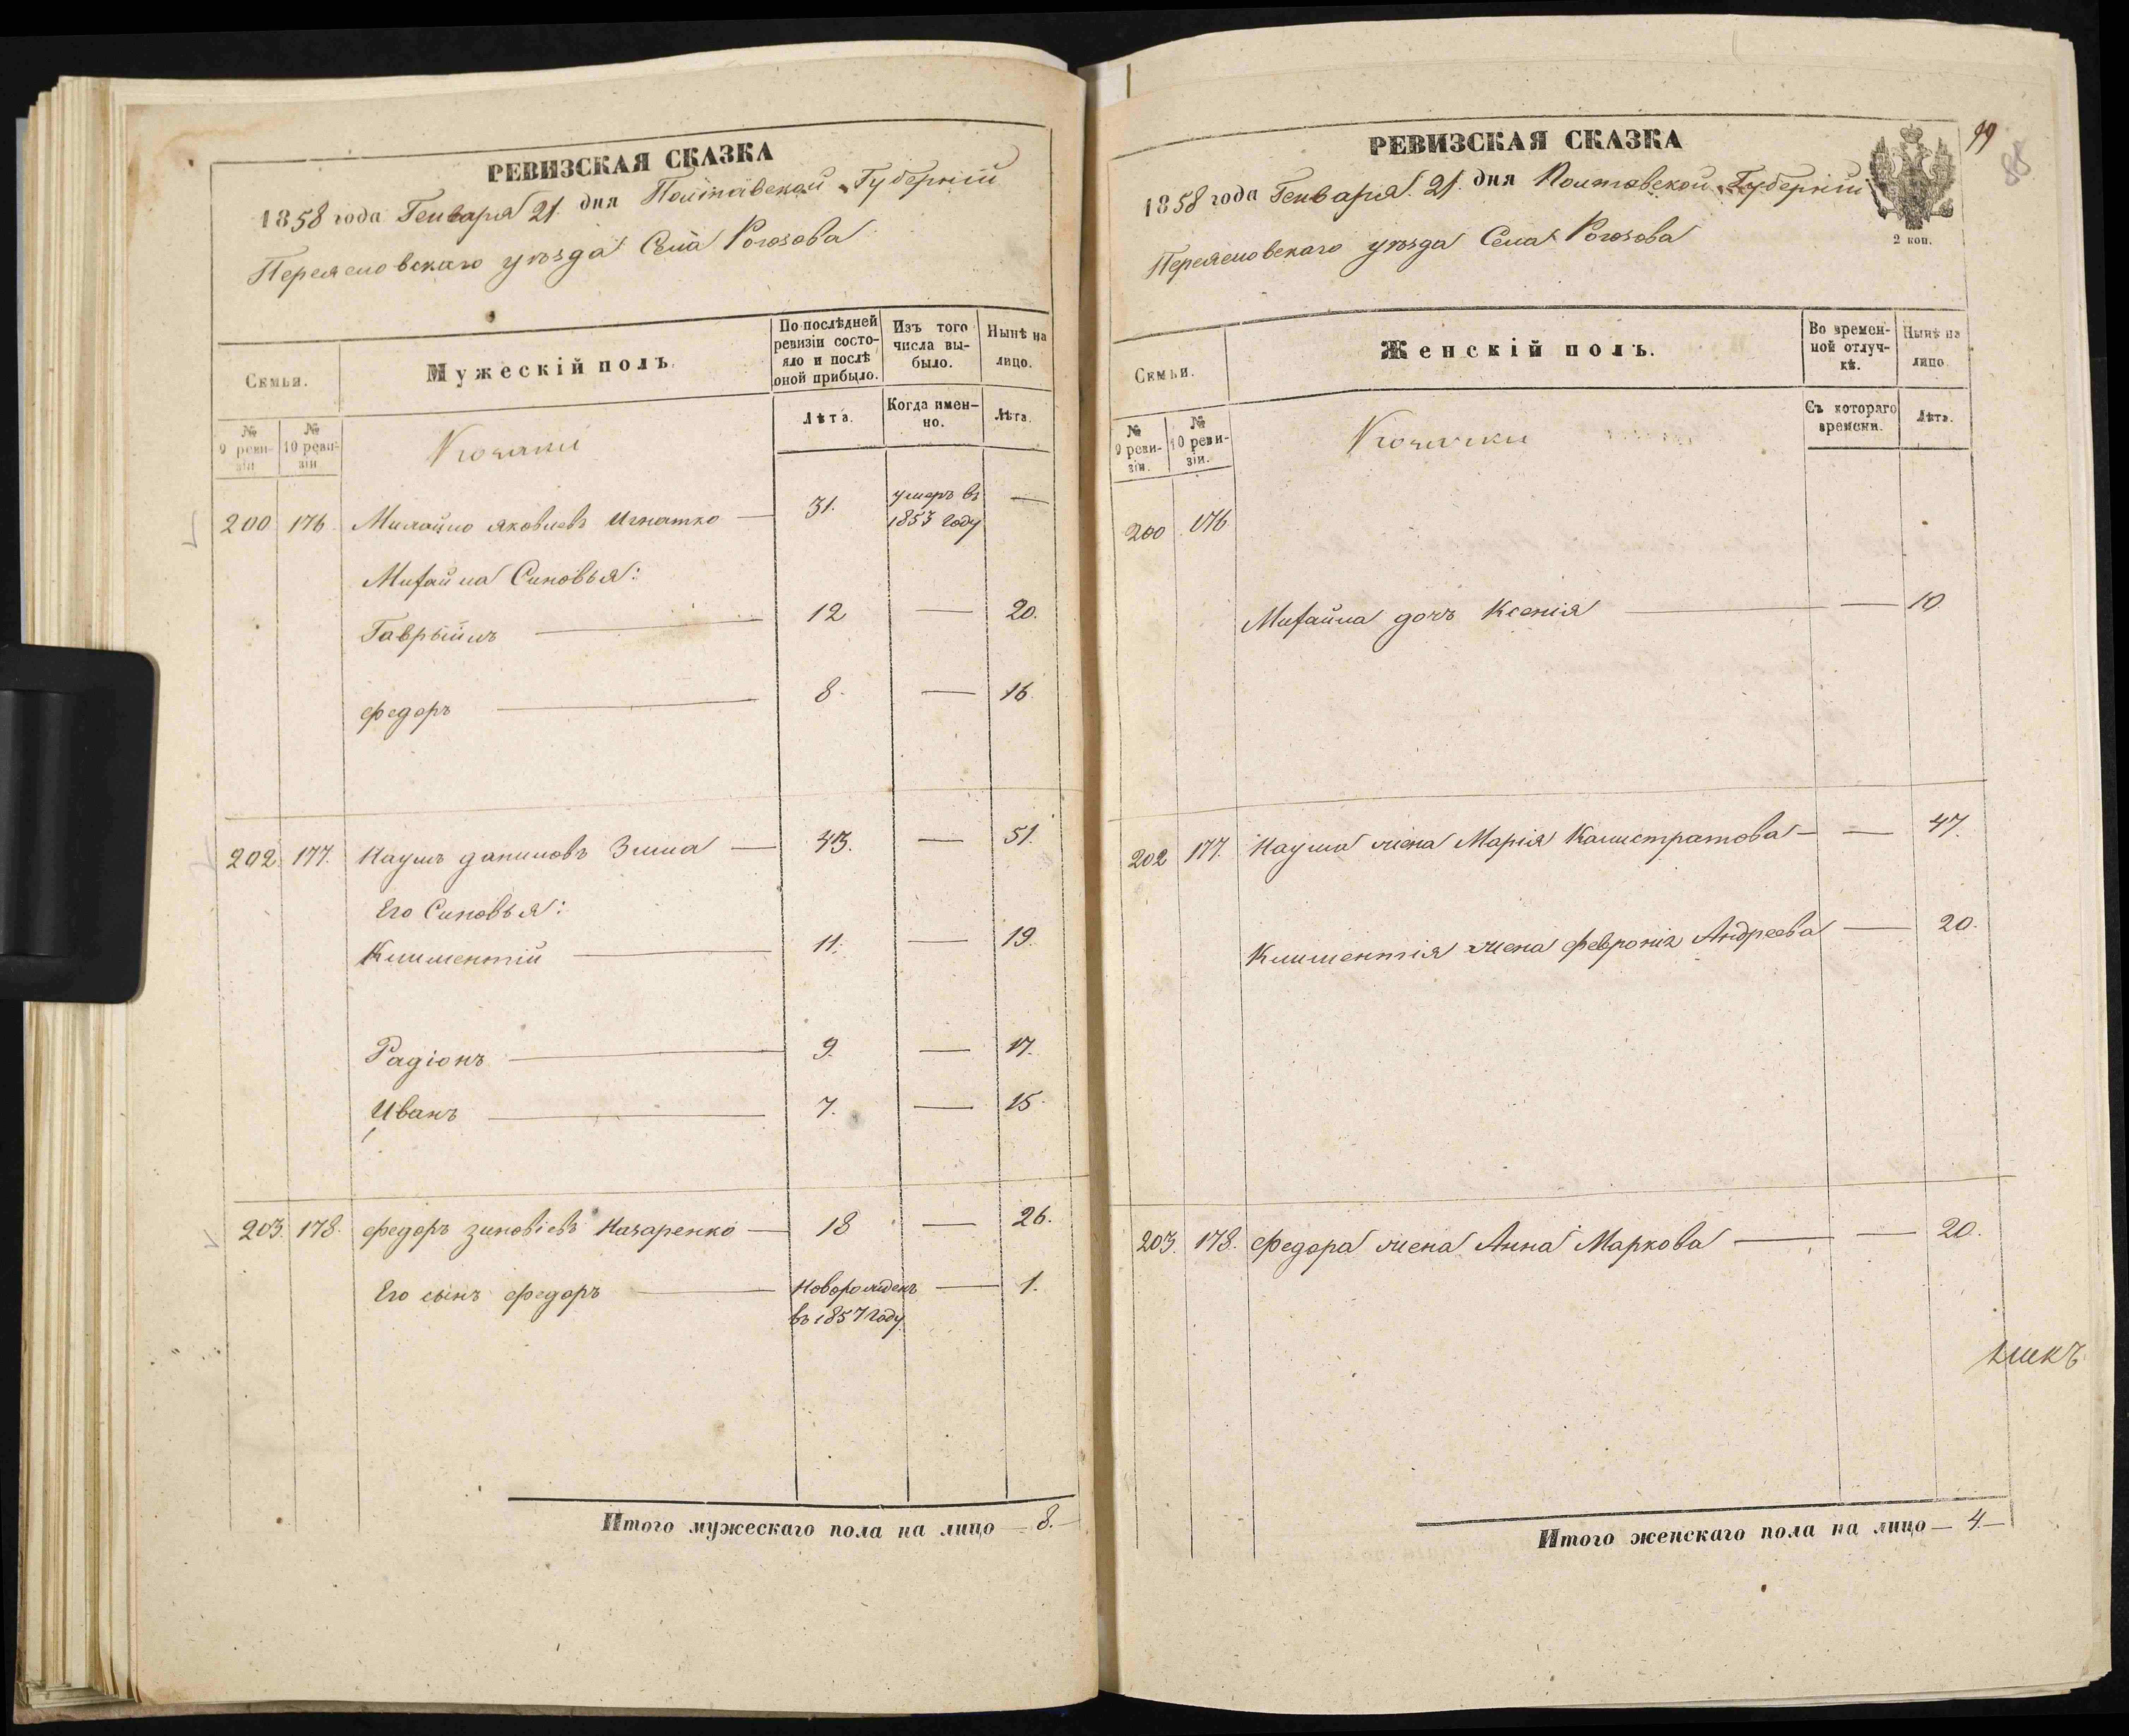 РЕВИЗСКАЯ СКАЗКА
1858 года Генваря 21. дня Полтавской Губерніи
Переяславскаго уѣзда Села Рогозова
Семьи.
Мужескій полъ.
По послѣдней ревизіи состояло и послѣ оной прибыло.
Изъ того числа выбыло.
Нынѣ на лицо.
№ 9 ревизіи
№ 10 ревизіи
Козаки
Лѣта.
Когда именно.
Лѣта.
200 176 Михайло Яковлевъ Игнатко — 31. умеръ въ 1853 году —
Михайла Сыновья:
Гаврыилъ — 12 — 20.
Федоръ — 8. — 16.
202. 177. Наумъ Даниловъ Зима — 43. — 51.
Его Сыновья:
Климентій — 11. — 19.
Радіонъ — 9. — 17.
Иванъ — 7. — 15.
203. 178. Федоръ Зиновіевъ Назаренко — 18 — 26.
Его сынъ Федоръ — Новорожденъ — 1.
въ 1857 году
Итого мужескаго пола на лицо — 8. —
99
88
РЕВИЗСКАЯ СКАЗКА
1858 года Генваря 21. дня Полтавской Губерніи
2 коп.
Переяславскаго уѣзда Села Рогозова
Семьи.
Женскій полъ.
Во временной отлучкѣ.
Нынѣ на лицо
№ 9 ревизіи.
№ 10 ревизіи.
Козачки
Съ котораго времени.
Лѣта.
200 176
Михайла дочь Ксенія — — 10
202 177. Наума жена Марія Калистратова — — 47.
Климентія жена Февронія Андреева — 20.
203. 178. Федора жена Анна Маркова — — 20.
Итого женскаго пола на лицо — 4. —